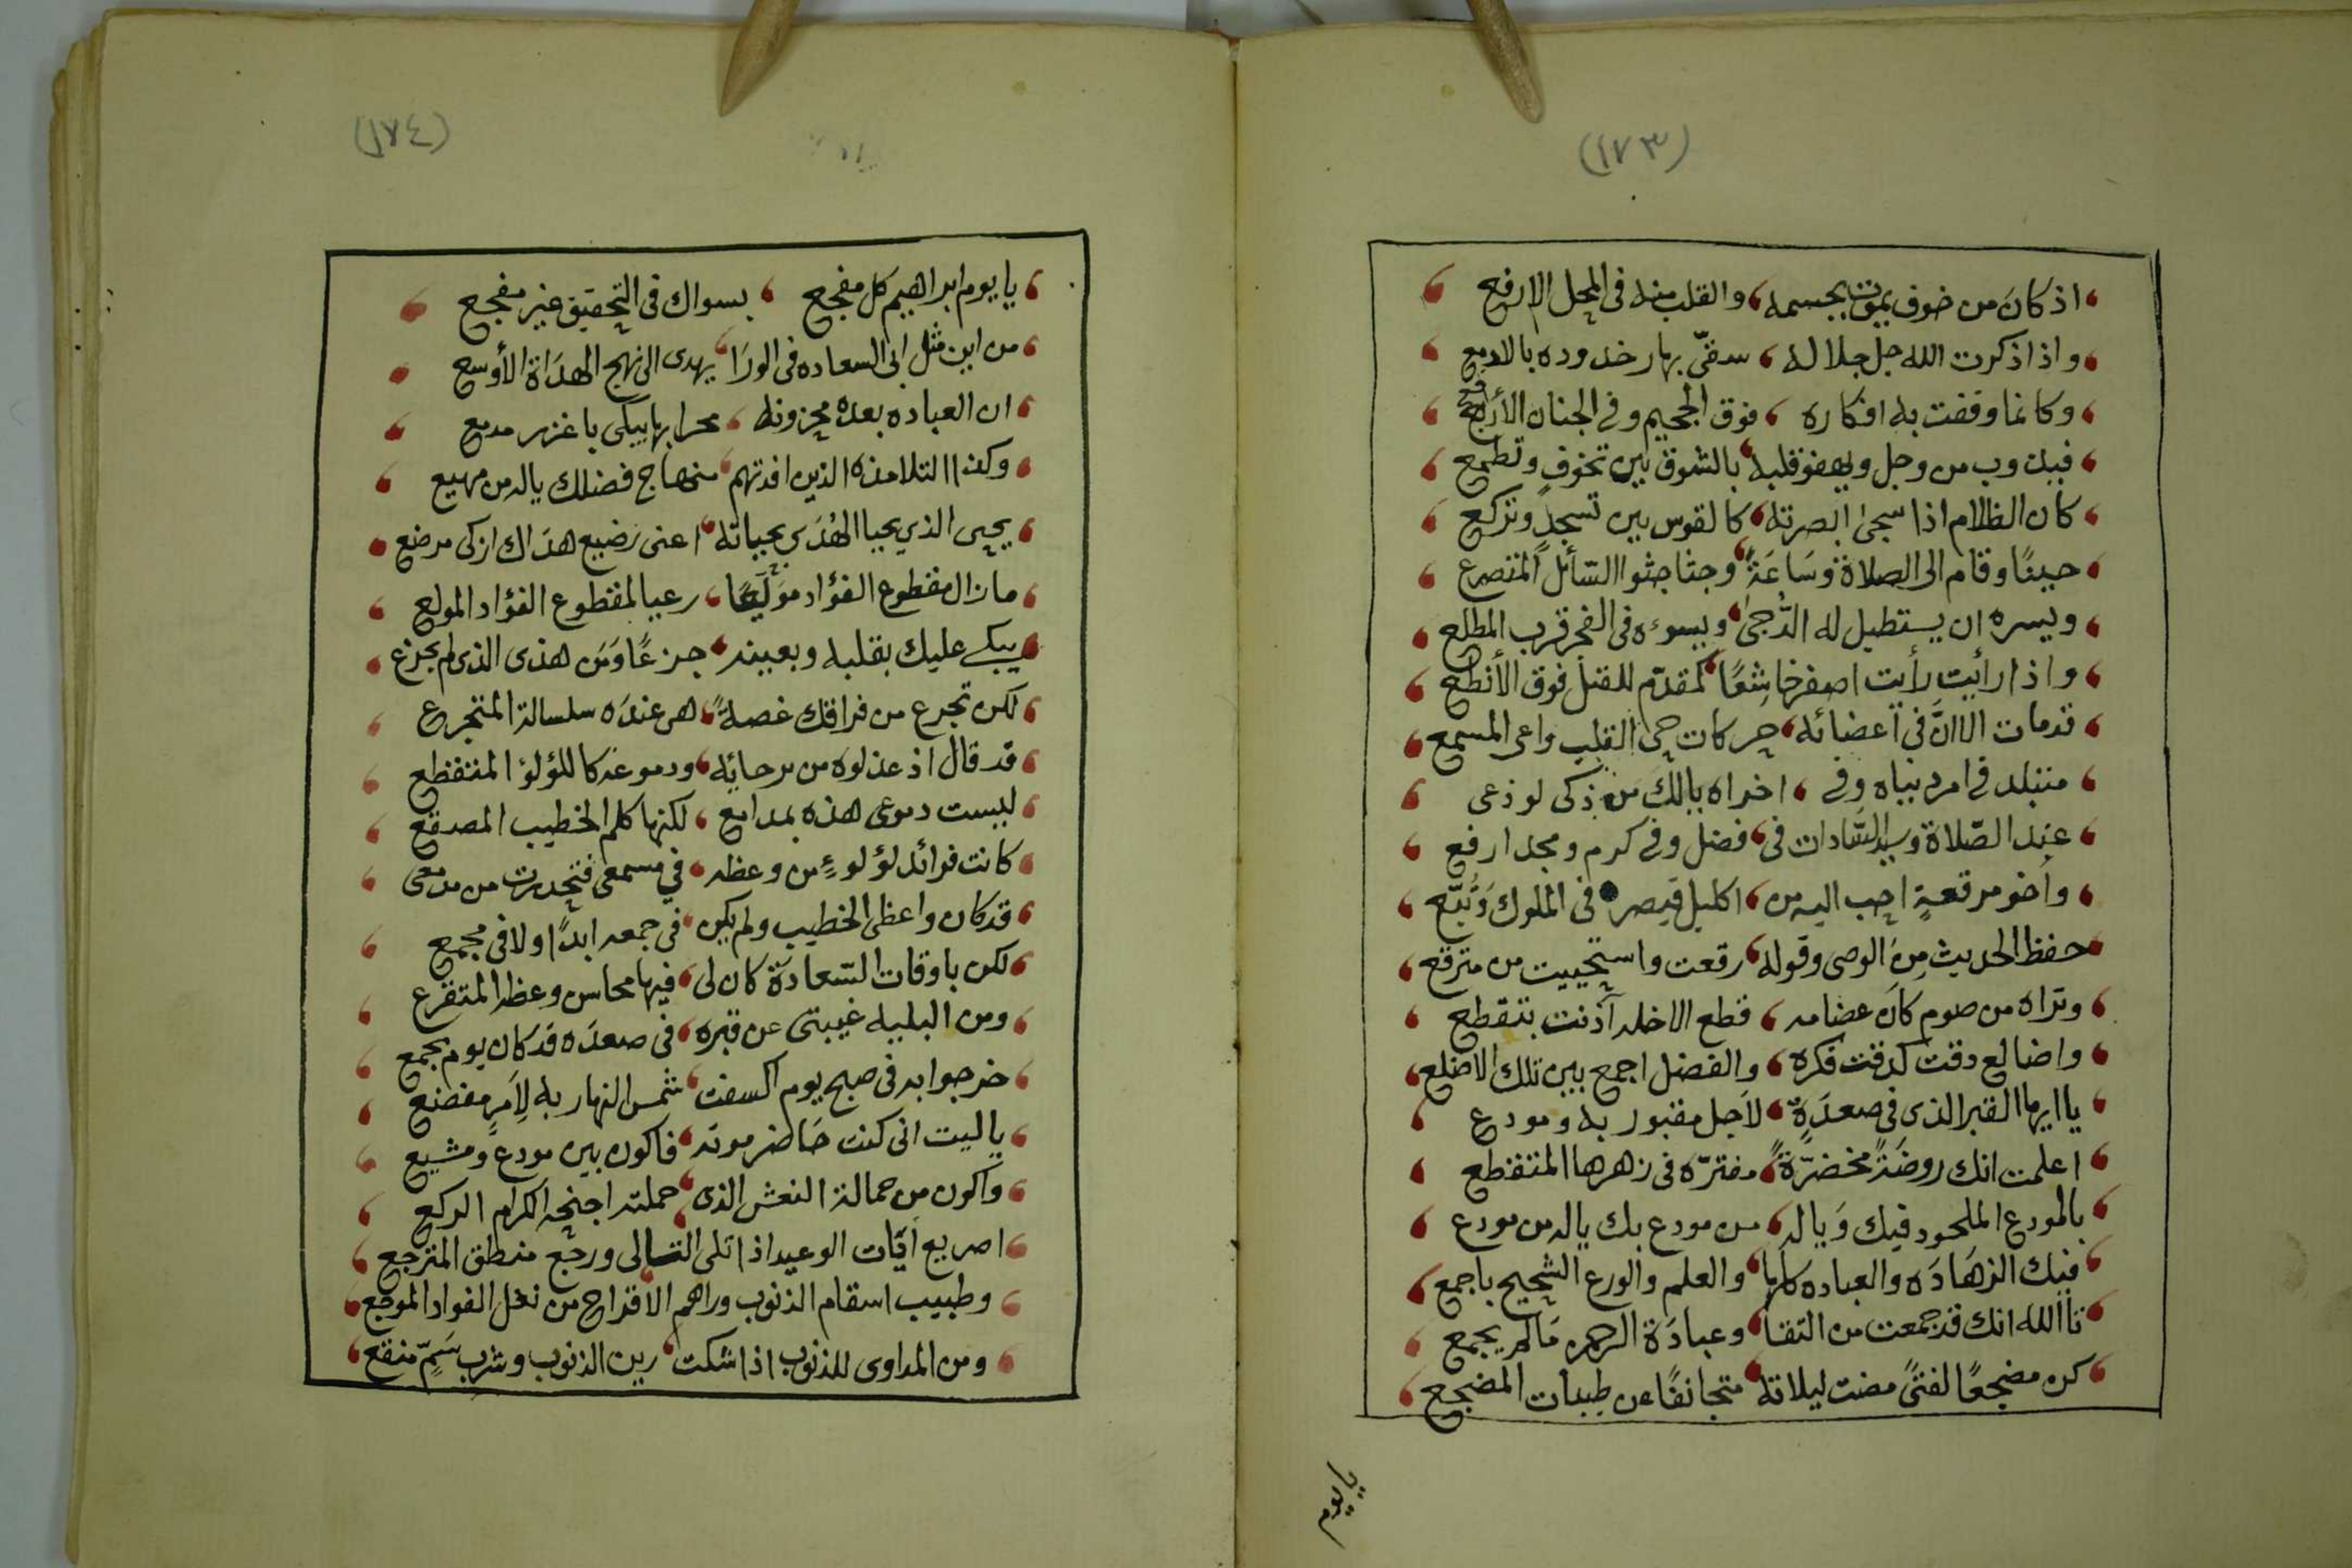 (١٧٣)
اذ كان من خوف يموت بجسمه والقلب منه فى المحل الارفع
واذا ذكرت الله جل جلاله سقى بهار خدوده بالادمع
وكانما وقفت به افكاره فوق الجحيم وفى الجنان الأرفع
فيذوب من وجل ويهفو قلبه بالشوق بين تخوف وتطمع
كان الظلام اذا سجى ابصرته كالقوس بين تسجد وتركع
حينًا وقام الى الصلاة وسَاعَةً وجثا جثوا السّائل المتضرع
ويسره ان يستطيل له الدُّجى ويسوءه فى الفجر قرب المطلع
واذا رأيت رأيت اصفر خاشِعًا كمقدّم للقتل فوق الأنطع
قدمات الا انَّ فى اعضائه حركات حى القلب واعى المسمع
متبلد فى امر دنياه وفى اخراه يالك من ذكى لوذعى
عبد الصّلاة وسيد السّادات فى فضل وفى كرم ومجد ارفع
واخو مرقعةٍ احب اليه من اكليل قيصر فى الملوك وَتُبّع
حفظ الحديث مِنَ الوصى وقوله رقعت واستحييت من مترقع
وتراه من صوم كَانَ عضامه قطع الاخله آذنت بتقطع
واضالع دقت كدقت فكره والفضل اجمع بين تلك الاضلع
يا ايها القبر الذى فى صعدَةٍ لاَجل مقبور به ومودع
اعلمت انك روضَةً مخضرّةً مفترّه فى زهرها المتقطع
بالمودع الملحود فيك وَياله من مودع بك ياله من مودع
فيك الزهَادَه والعباده كلها والعلم والورع الشحيح باجمع
تاالله انك قد جمعت من التقا وعبادَة الرحمن مَا لم يجمع
كن مضجعًا لفتىً مضت ليلاته متجانفًا عن طيبات المضجع
يا يوم
(١٧٤)
يا يوم ابراهيم كل مفجع بسواك فى التحقيق غير مفجع
من اين مثل ابى السعاده فى الورَا يهدى الى نهج الهدَاة الأوسع
ان العباده بعده محزونه محرابها يبكى باغزر مدمع
وكذا التلامذه الذين افدتهم منهاج فضلك ياله من مهيع
يحيى الذي يحيا الهُدَى بحياته اعنى رَضيع هدَاك ازكى مرضع
مازال مقطوع الفؤاد مولّعًا رعيا لمقطوع الفؤاد المولع
يبكى عليك بقلبه وبعينه جزعًا وَمَن هذى الذى لم يجزع
لكن تجرع من فراقك غصةً هى عندَه سلسالة المتجرع
قد قال اذ عذلوه من برحائه ودموعه كاللؤلؤ المتقطع
ليست دموعى هذه بمدامع لكنها كلم الخطيب المصقع
كانت فرائد لؤلوءٍ من وعظه في مسمعى فتحدرت من مدمعى
قد كان واعظى الخطيب ولم يكن فى جمعه ابدًا ولا فى مجمع
لكن باوقات السّعادَة كان لى فيها محاسن وعظه المتفرع
ومن البليه غيبتى عن قبره فى صعدَه قد كان يوم تجمع
خرجوا به فى صبح يوم اكسفت شمس النهار به لِأمرٍ مفضع
يا ليت انى كنت حَاضر موته فاكون بين مودع ومشيع
واكون من حمالة النعش الذى حملته اجنحه الكرام الركع
اصريع آيَات الوعيد اذا تلى التالى ورجع منطق المترجع
وطبيب اسقام الذنوب وراهم الاقراح من نغل الفواد الموجع
ومن المداوى للذنوب اذا شكت رين الذنوب وشرب سَمِّ منقع